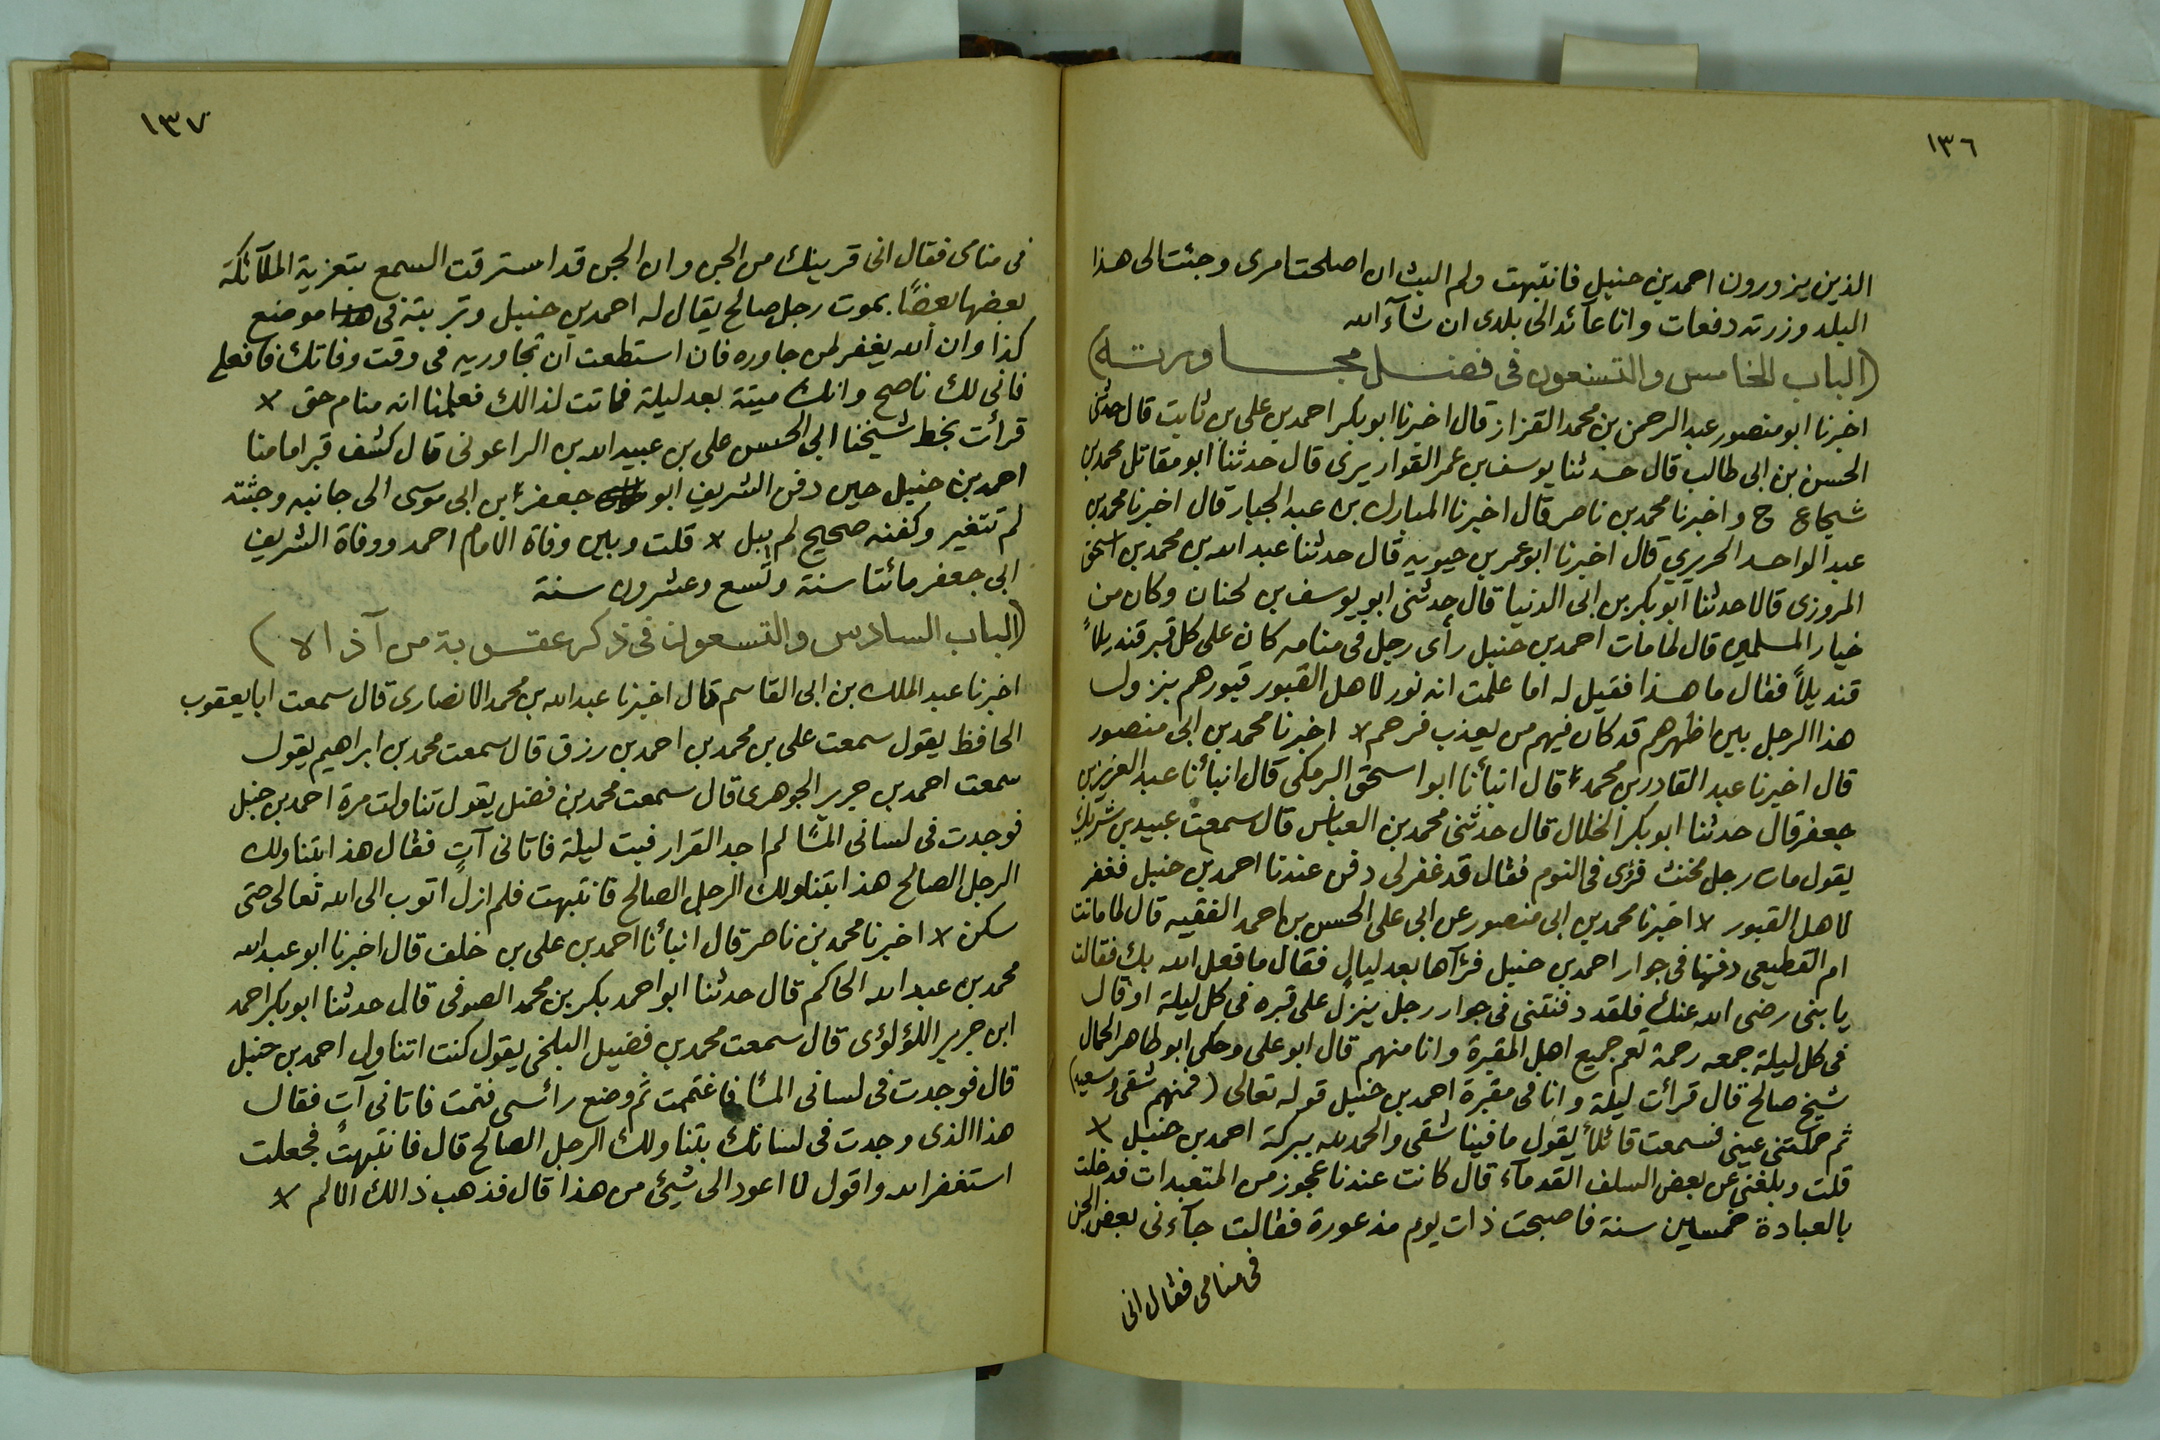 ١٣٦
الذين يزورون احمد بن حنبل فانتبهت ولم البث ان اصلحت امرى وجئت الى هذا
البلد وزرته دفعات وانا عائد الى بلدى ان شآء الله
(الباب الخامس والتسعون فى فضل مجاورته)
اخبرنا ابو منصور عبد الرحمن بن محمد القزاز قال اخبرنا ابو بكر احمد بن على بن ثابت قال حدثنى
الحسن بن ابى طالب قال حدثنا يوسف بن عمر القواريرى قال حدثنا ابو مقاتل محمد بن
شجاع ح واخبرنا محمد بن ناصر قال اخبرنا المبارك بن عبد الجبار قال اخبرنا محمد بن
عبد الواحد الحريري قال اخبرنا ابو عمر بن حيويه قال حدثنا عبد الله بن محمد بن اسحق
المروزى قالا حدثنا ابو بكر بن ابى الدنيا قال حدثنى ابو يوسف بن لحنان وكان من
خيار المسلمين قال لما مات احمد بن حنبل رأى رجل فى منامه كان على كل قبر قنديلاً
قنديلاً فقال ما هذا فقيل له اما علمت انه نور لاهل القبور قبورهم بنزول
هذا الرجل بين اظهرهم قد كان فيهم من يعذب فرحم لا اخبرنا محمد بن ابى منصور
قال اخبرنا عبد القادر بن محمد قال انبأنا ابو اسحق البرمكى قال انبأنا عبد العزيز بن
جعفر قال حدثنا ابو بكر الخلال قال حدثنى محمد بن العباس قال سمعت عبيد بن شريك
يقول مات رجل مخنث فرؤى فى النوم فقال قد غفر لى دفن عندنا احمد بن حنبل فغفر
لاهل القبور لا اخبرنا محمد بن ابى منصور عن ابى على الحسن بن احمد الفقيه قال لما ماتت
ام القطيعى دفنها فى جوار احمد بن حنبل فرآها بعد ليال فقال ما فعل الله بك فقالت
يا بنى رضى الله عنك فلقد دفنتنى فى جوار رجل ينزل على قبره فى كل ليلة او قال
فى كل ليلة جمعه رحمة تعم جميع اهل المقبرة وانا منهم قال ابو على وحكى ابو طاهر الجمال
شيخ صالح قال قرأت ليلة وانا فى مقبرة احمد بن حنبل قوله تعالى (فمنهم شقى وسعيد)
ثم حملتنى عينى فسمعت قائلاً يقول ما فينا شقى والحمد لله ببركة احمد بن حنبل لا
قلت وبلغنى عن بعض السلف القدمآء قال كانت عندنا عجوز من المتعبدات قد خلت
بالعبادة خمسين سنة فاصبحت ذات يوم مذعورة فقالت جآءنى بعض الجن
فى منامى فقال انى
١٣٧
فى منامى فقال انى قرينك من الجن وان الجن قد استرقت السمع بتعزية الملآئكة
بعضها بعضًا بموت رجل صالح يقال له احمد بن حنبل وتربته فى موضع
كذا وان الله يغفر لمن جاوره فان استطعت ان تجاوريه فى وقت وفاتك فافعلى
فانى لك ناصح وانك ميتة بعد ليلة فماتت لذالك فعلمنا انه منام حق لا
قرأت بخط شيخنا ابى الحسن على بن عبيد الله بن الراعونى قال كشف قبر امامنا
احمد بن حنبل حين دفن الشريف ابو جعفر بن ابى موسى الى جانبه وجثته
لم تتغير وكفنه صحيح لم يبل لا قلت وبين وفاة الامام احمد ووفاة الشريف
ابى جعفر مائتا سنة وتسع وعشرون سنة
(الباب السادس والتسعون فى ذكر عقوبة من آذاه)
اخبرنا عبد الملك بن ابى القاسم قال اخبرنا عبد الله بن محمد الانصارى قال سمعت ابا يعقوب
الحافظ يقول سمعت على بن محمد بن احمد بن رزق قال سمعت محمد بن ابراهيم يقول
سمعت احمد بن جرير الجوهرى قال سمعت محمد بن فضل يقول تناولت مرة احمد بن حنبل
فوجدت فى لسانى المًا لم اجد القرار فبت ليلة فاتانى آتٍ فقال هذا بتناولك
الرجل الصالح هذا بتناولك الرجل الصالح فانتبهت فلم ازل اتوب الى الله تعالى حتى
سكن لا اخبرنا محمد بن ناصر قال انبأنا احمد بن على بن خلف قال اخبرنا ابو عبد الله
محمد بن عبد الله الحاكم قال حدثنا ابو احمد بكر بن محمد الصوفى قال حدثنا ابو بكر احمد
ابن جرير اللؤلؤى قال سمعت محمد بن فضيل البلخى يقول كنت اتناول احمد بن حنبل
قال فوجدت فى لسانى المًا فاغتممت ثم وضع رائسى فنمت فاتانى آت فقال
هذا الذى وجدت فى لسانك بتناولك الرجل الصالح قال فانتبهت فجعلت
استغفر الله واقول لا اعود الى شيئ من هذا قال فذهب ذالك الالم لا